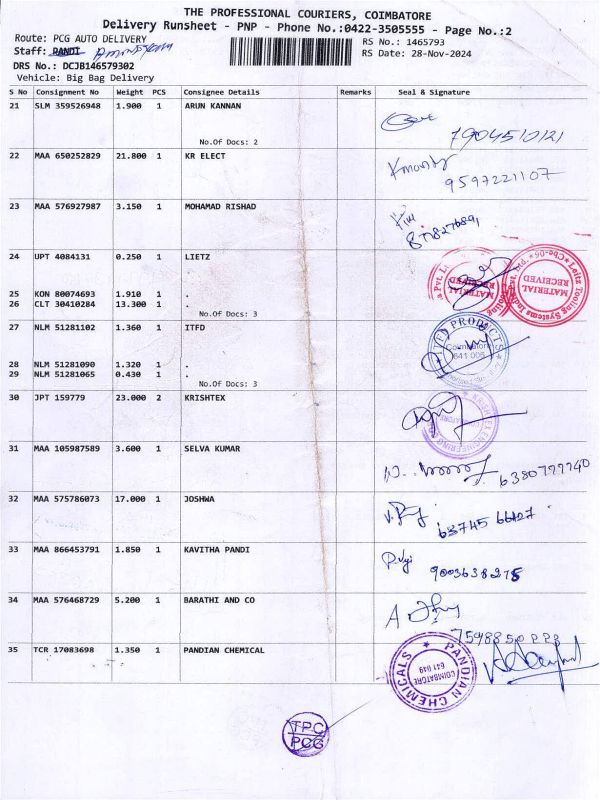 THE PROFESSIONAL COURIERS, COIMBATORE
Delivery Runsheet - PNP - Phone No.:0422-3505555 - Page No.:2
Route: PCG AUTO DELIVERY
RS No.: 1465793
Staff: PANDI
RS Date: 28-Nov-2024
DRS No.: DCJB146579302
Vehicle: Big Bag Delivery
S No Consignment No Weight PCS Consignee Details Remarks Seal & Signature
21 SLM 359526948 1.900 1 ARUN KANNAN
No.Of Docs: 2
7904510121
22 MAA 650252829 21.800 1 KR ELECT
9597221107
23 MAA 576927987 3.150 1 MOHAMAD RISHAD
24 UPT 4084131 0.250 1 LIETZ
MATERIAL RECEIVED
Leitz Tooling Systems
MATERIAL RECEIVED
25 KON 80074693 1.910 1 .
26 CLT 30410284 13.300 1 .
No.Of Docs: 3
27 NLM 51281102 1.360 1 ITFD
PRODUCTS
Coimbatore
641 005
28 NLM 51281090 1.320 1 .
29 NLM 51281065 0.430 1 .
No.Of Docs: 3
30 JPT 159779 23.000 2 KRISHTEX
ENGINEERING
31 MAA 105987589 3.600 1 SELVA KUMAR
6380777740
32 MAA 575786073 17.000 1 JOSHWA
63745 66127
33 MAA 866453791 1.850 1 KAVITHA PANDI
9003638275
34 MAA 576468729 5.200 1 BARATHI AND CO
35 TCR 17083698 1.350 1 PANDIAN CHEMICAL
PANDIAN CHEMICALS
COIMBATORE
TPC
PCG